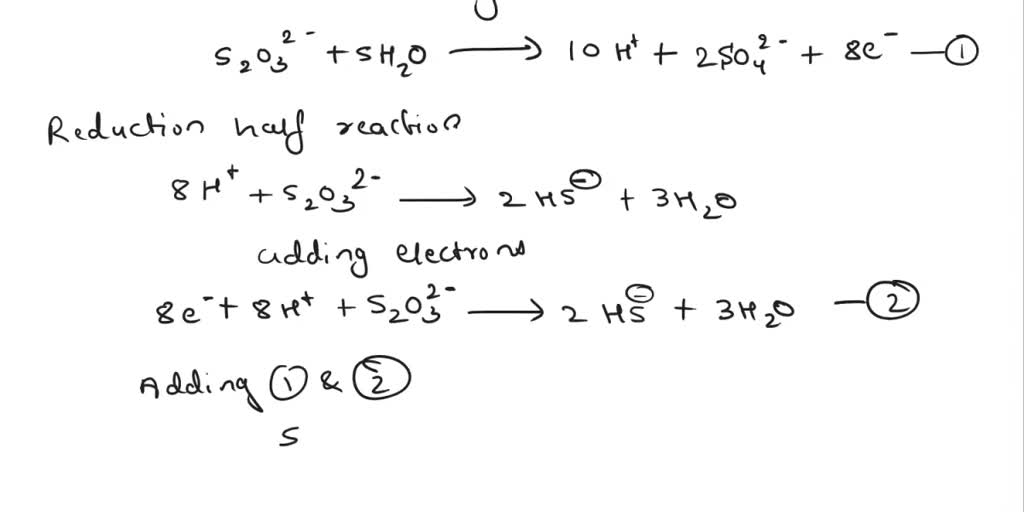 S₂O₃²⁻ + 5H₂O ⟶ 10 H⁺ + 2SO₄²⁻ + 8e⁻ —①
Reduction half reaction
8H⁺ + S₂O₃²⁻ ⟶ 2 HS⊖ + 3H₂O
adding electrons
8e⁻ + 8H⁺ + S₂O₃²⁻ ⟶ 2 HS⊖ + 3H₂O —②
Adding ① & ②
S